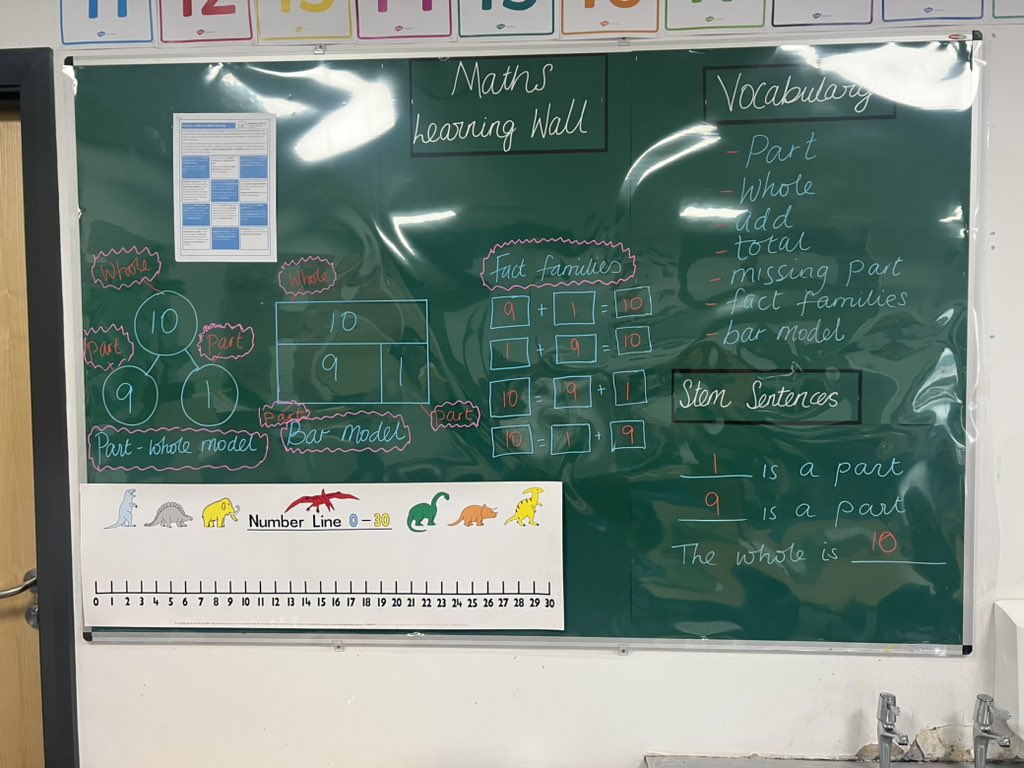 11 12 13 14 15 16
Maths
Learning Wall
Whole
10
Part
Part
9
1
Part-whole model
Whole
10
9
1
Part
Part
Bar model
Fact families
9 + 1 = 10
1 + 9 = 10
10 = 9 + 1
10 = 1 + 9
Vocabulary
- Part
- Whole
- add
- total
- missing part
- fact families
- bar model
Stem Sentences
1 is a part
9 is a part
The whole is 10
Number Line 0-30
0 1 2 3 4 5 6 7 8 9 10 11 12 13 14 15 16 17 18 19 20 21 22 23 24 25 26 27 28 29 30